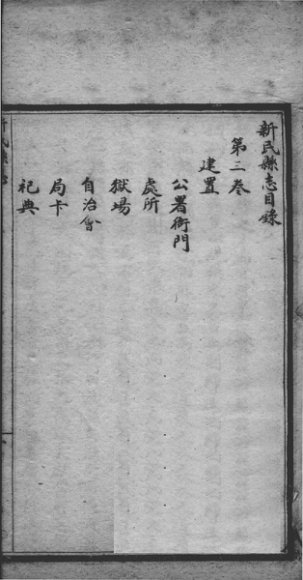 新民縣志目錄
第二卷
建置
公署衙門
處所
獄場
自治會
局卡
祀典